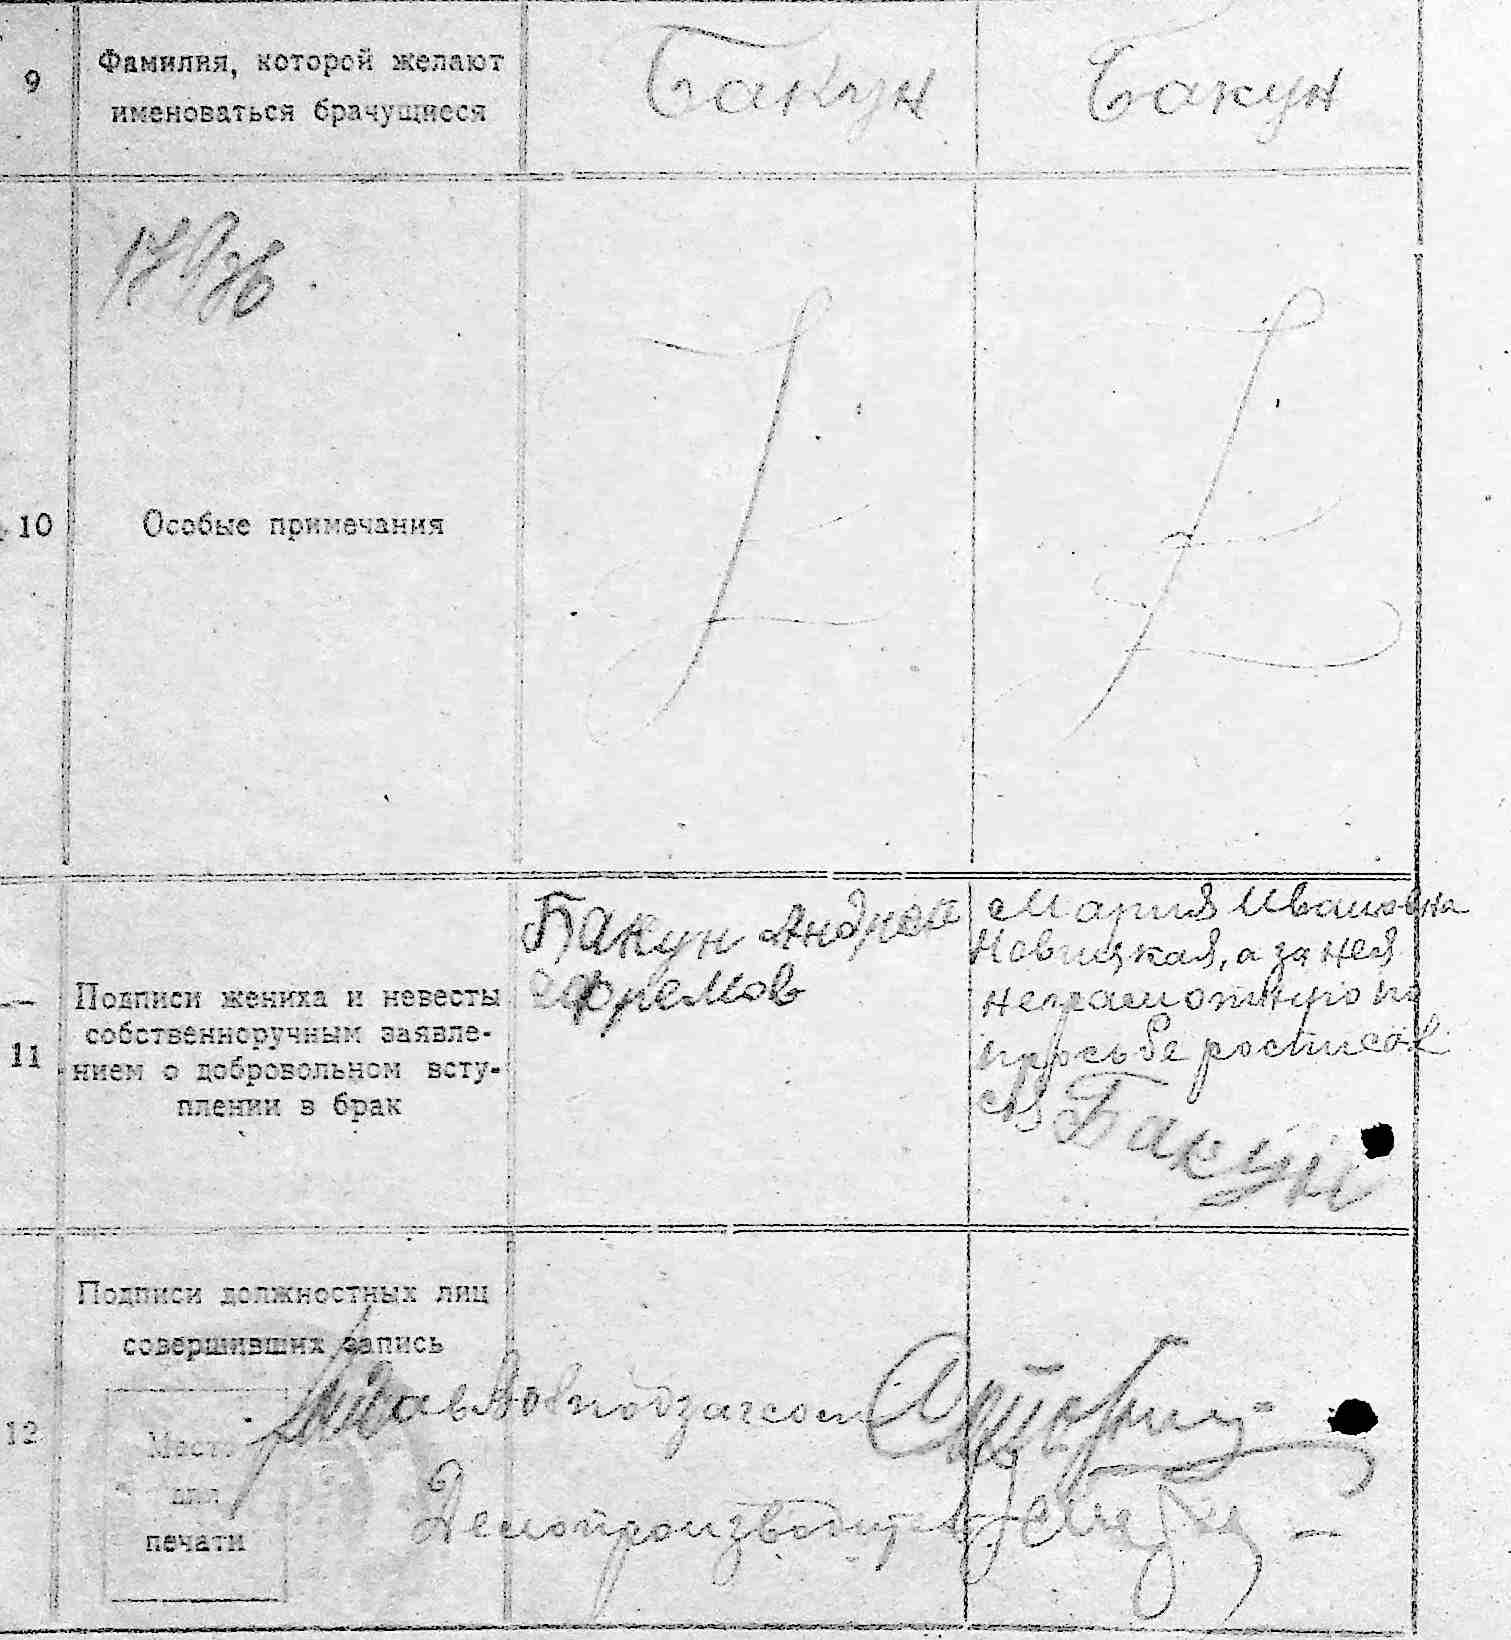 9
Фамилия, которой желают
именоваться брачущиеся
Бакун
Бакун
10
Особые примечания
11
Подписи жениха и невесты
собственноручным заявле-
нием о добровольном всту-
плении в брак
Бакун Андрей
Ефремов
Мария Ивановна
Новицкая, а за нея
неграмотную по
просьбе росписался
Бакун
12
Подписи должностных лиц
совершивших запись
Место
для
печати
Зав подзагсом
Делопроизводитель